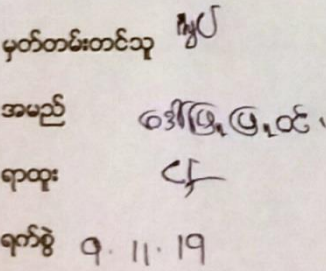 မှတ်တမ်းတင်သူ
အမည် ဒေါ်ဖြူဖြူဝင်း
ရာထူး
ရက်စွဲ 9.11.19